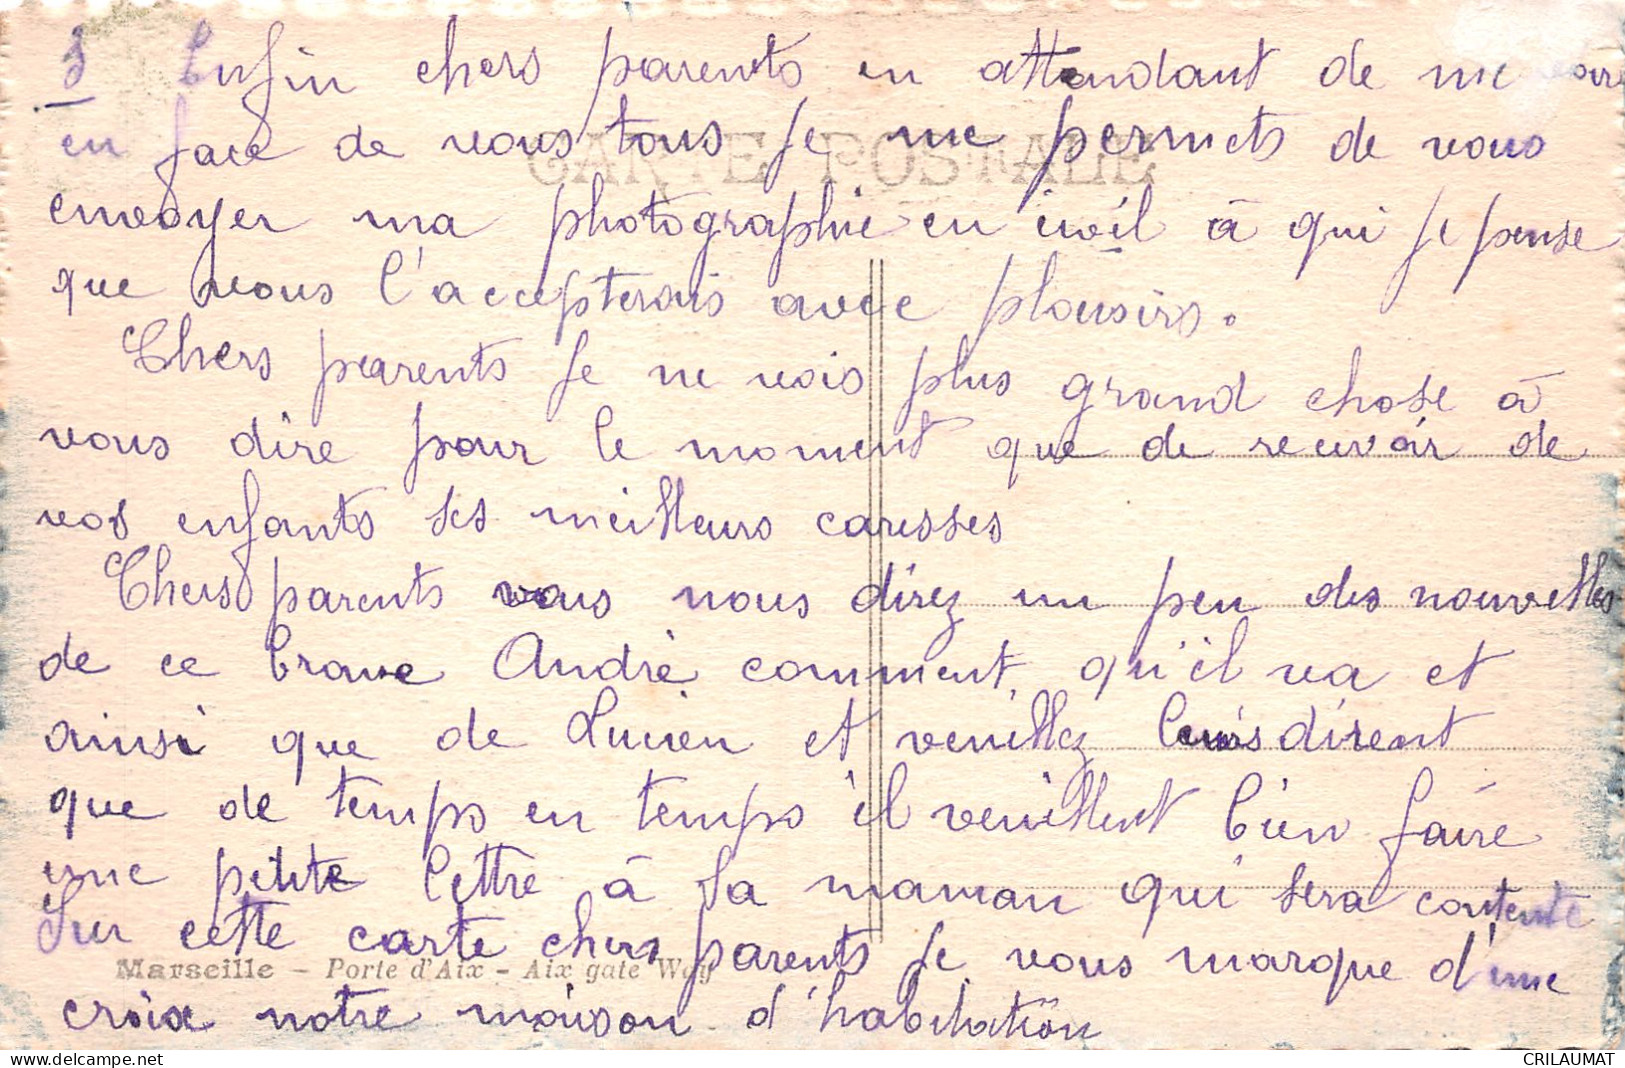 3 Enfin chers parents en attendant de me
en face de vous tous Je me permets de vous
CARTE POSTALE
envoyer ma photographie en civil à qui je pense
que vous l'accepterais avec plousirs.
Chers parents Je ne vois plus grand chose à
vous dire pour le moment que de recevoir de
vos enfants ses meilleurs caresses
Chers parents vous nous direz un peu des nouvelles
de ce brave André comment qu'il va et
ainsi que de Lucien et veuillez leurs dirent
que de temps en temps il veuillent bien faire
une petite lettre à sa maman qui sera contente
Sur cette carte chers parents Je vous marque d'une
Marseille - Porte d'Aix - Aix gate Way
croix notre maison d'habitation
CRILAUMAT